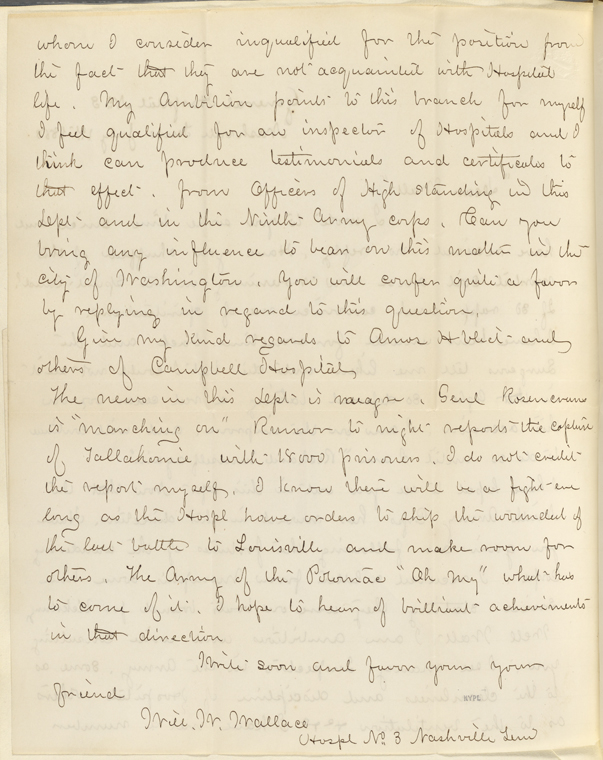 whom I consider inqualified for the position from
the fact that they are not acquainted with Hospital
life. My Ambition points to this branch for myself
I feel qualified for an inspector of Hospitals and I
think can produce testimonials and certificates to
that effect. from Officers of High standing in this
Dept and in the Ninth Army corps. Can you
bring any influence to bear on this matter in the
city of Washington. You will confer quite a favor
by replying in regard to this question.
Give my Kind regards to Amos H and
others of Campbell Hospital,
The news in this Dept is meagre. Genl Rosencrans
is "marching on" Rumor to night reports the capture
of Tallahomie with 18000 prisoners. I do not credit
the report myself. I know there will be a fight ere
long as the Hospl have orders to ship the wounded of
the last battle to Louisville and make room for
others. The Army of the Potomac "Oh My" what has
to come of it. I hope to hear of brilliant achievments
in that direction
Write soon and favor your your
friend
Will. W. Wallace
Hospl No 3 Nashville Tenn
NYPL